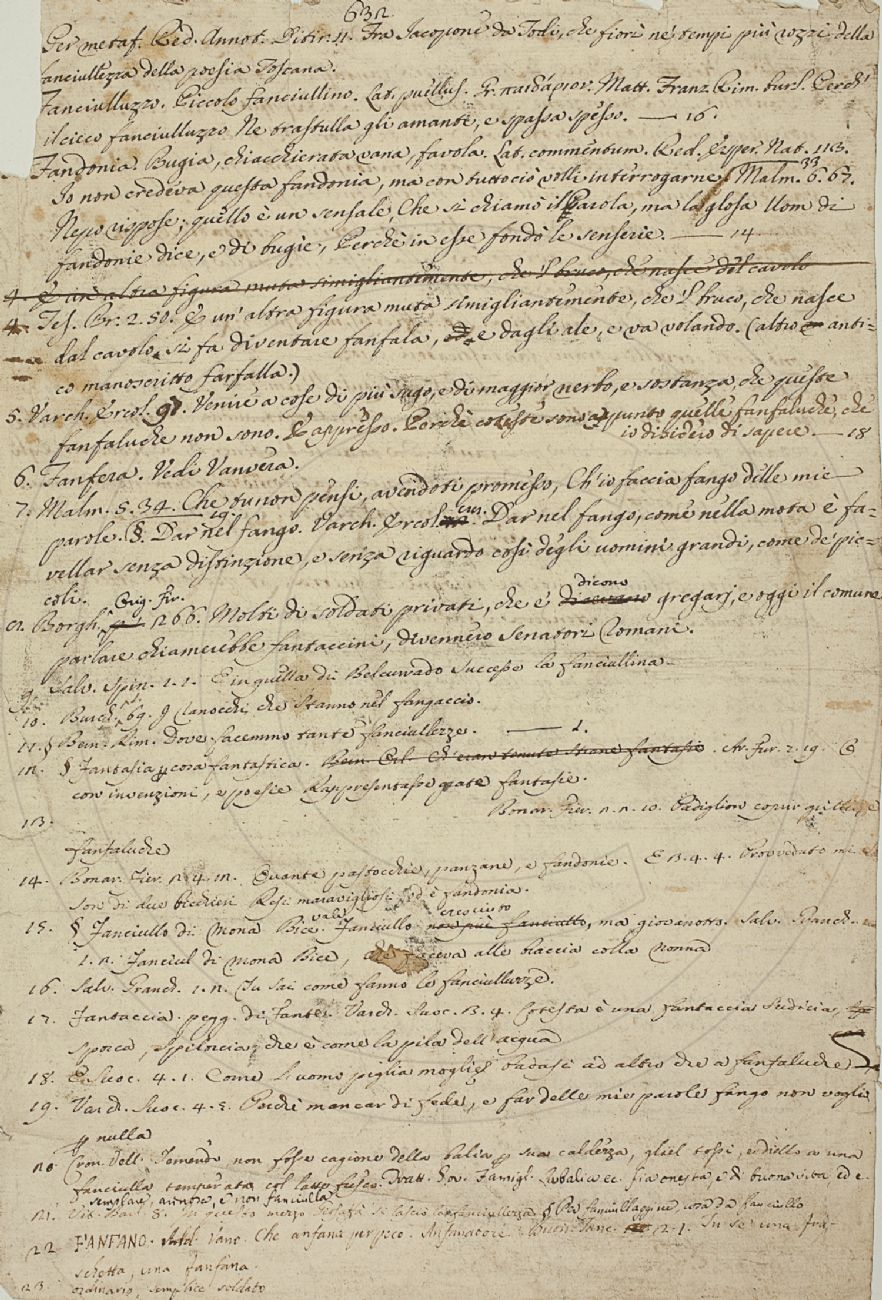 632
Per metaf. Red. Annot. Ditir. 11. Fra Jacopone da Todi, che fiorì ne' tempi più rozzi della
fanciullezza della poesia Toscana.
Fanciulluzzo. Piccolo fanciullino. Lat. puellus. Gr. παιδάριον. Matt. Franz. Rim. burl. Perch'
il cieco fanciulluzzo Ne trastulla gli amanti, e spassa spesso. — 16.
Fandonia. Bugia, chiacchierata vana, favola. Lat. commentum. Red. Esper. Nat. 113.
Io non credeva questa fandonia, ma con tuttociò volli interrogarne. Malm. 6. 67.
33
Nepo rispose; quello è un sensale, Che si chiamò il Parola, ma la glosa Uom di
fandonie dice, e di bugie, Perchè in esse fondò le senserie. — 14
4. E un' altra figura muta simigliantemente, che 'l bruco, che nasce del cavolo
4. Tes. Br. 2. 50. E un' altra figura muta simigliantemente, che 'l bruco, che nasce
dal cavolo, si fa diventare fanfala, e dagli ale, e va volando. (altro anti-
co manoscritto farfalla.)
5. Varch. Ercol. 91. Venire a cose di più sugo, e di maggior nerbo, e sostanza, che queste
fanfaluche non sono. E appresso. Perchè coteste sono appunto quelle fanfaluche, che
io disidero di sapere — 18
6. Fanfera. Vedi Vanvera.
7. Malm. 5. 34. Che tu non pensi, avendoti promesso, Ch' io faccia fango delle mie
parole. §. Dar nel fango. Varch. Ercol. Dar nel fango, come nella mota è fa-
vellar senza distinzione, e senza riguardo così degli uomini grandi, come de' pic-
coli.
8. Borgh. Orig. Fir. 266. Molti di soldati privati, che e' dicono gregarj, e oggi il comune
parlare chiamerebbe fantaccini, divennero Senatori Romani.
9. Salv. Spin. 1. 1. E in quella di Belcurado Successe la fanciullina
10. Burch. 69. Ranocchi, che stanno nel fangaccio.
11. § Bern. Rim. Dove facemmo tante fanciullezze. — 1.
12. § Fantasia p cosa fantastica. Bern. Orl. Ch' eran tenute strane fantasie. Ar. Fur. 2. 19. E
con invenzioni, e poesie Rappresentasse grate fantasie.
13. Bonar. Fier. 2. 2. 10. Padiglion e
fanfaluche
14. Bonar. Fier. 2. 4. 12. Quante pastocchie, panzane, e fandonie. E 3. 4. 4. Provveduto mi
son di due bicchieri Resi maravigliosi ed è fandonia.
15. § Fanciullo di Mona Bice. vale Fanciullo non più fanciullo cresciuto, ma giovanotto. Salv. Granch.
1. 2. Fanciul di Mona Bice, che faceva alle braccia colla nonna
16. Salv. Granch. 1. 2. Tu sai come fanno le fanciulluzze.
17. Fantaccia. pegg. di Fante. Varch. Suoc. 3. 4. Cotesta è una fantaccia sudicia,
sporca, spilorcia, che è come la pila dell' acqua
18. E Suoc. 4. 1. Come l' uomo piglia moglie badasi ad altro che a fanfaluche
19. Varch. Suoc. 4. 5. Perchè mancar di fede, e far delle mie parole fango non voglio
p nulla
20. Cron. Vell. Temendo non fosse cagione della balia p sua caldezza, gliel tolsi, e diello a una
fanciulla temperata col latte fresco. Tratt. Gov. Famigl. sia onesta, e di buona vita, ed e
semplare, attenta, e non fanciulla
21. Vit. Bart. 8. In questo mezzo si lasciò la fanciullezza § Per fanciullaggine, cosa da fanciullo
22 FANFANO. Add. Vano. Che anfana per poco. Anfanatore. Buon. Tanc. 2. 1. Tu se' una fra-
schetta, una fanfana.
23. ordinario, semplice soldato